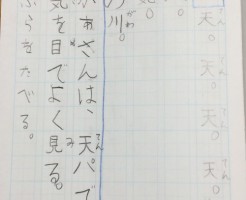 天。天。天。天。
の川。
さんは、天パで
気を目でよく見る。
ぷらをたべる。